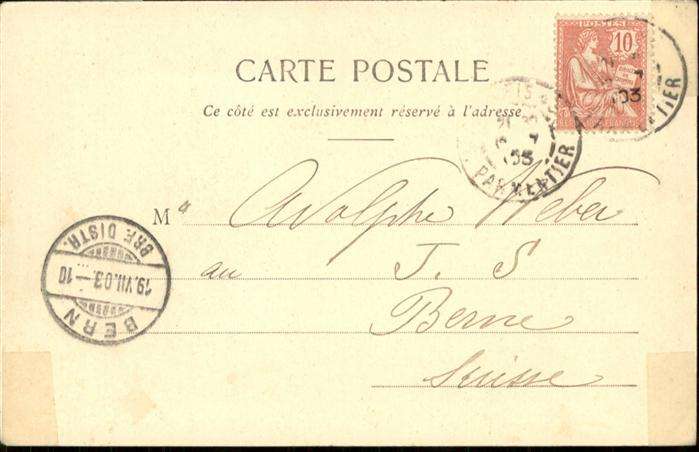 POSTES
10
CARTE POSTALE
Ce côté est exclusivement réservé à l'adresse
PARMENTIER
03
Ma Adolphe Weber
au J. S
Berne
Suisse
BRF. DISTR.
19.VII.03.–10
BERN